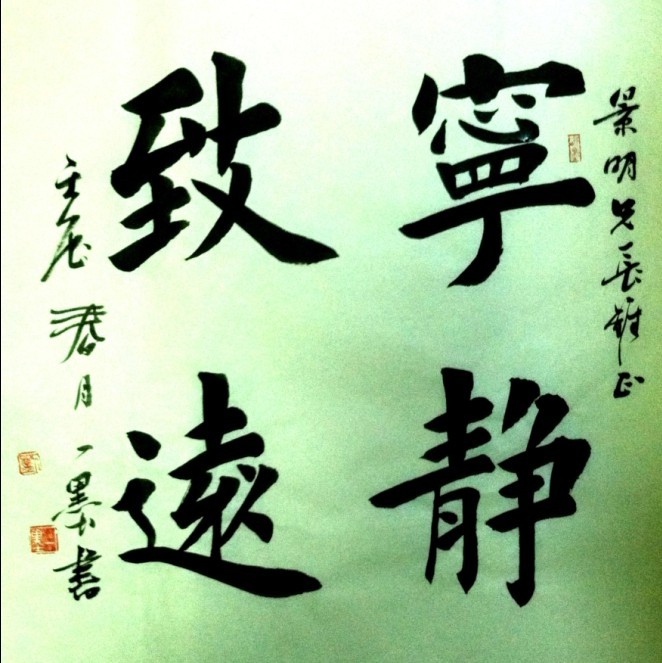 景明兄長雅正
寧靜
致遠
壬辰春月一墨書